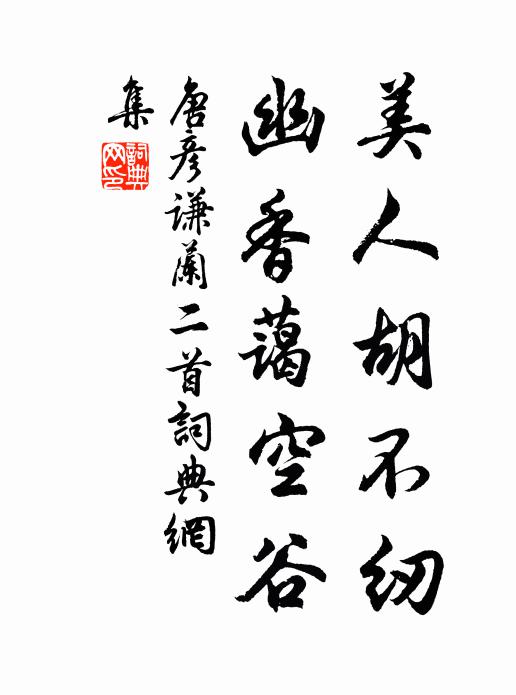 美人胡不纫
幽香藹空谷
唐彦謙蘭二首詞典網
集
詞典网印